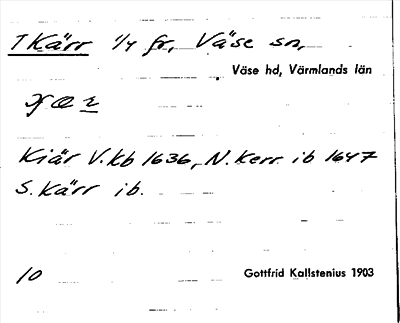 T Kärr 1/4 fr, Väse sn,
Väse hd, Värmlands län
Kiär V.kb 1636, N. Kerr ib 1647
S. Kärr ib.
10
Gottfrid Kallstenius 1903